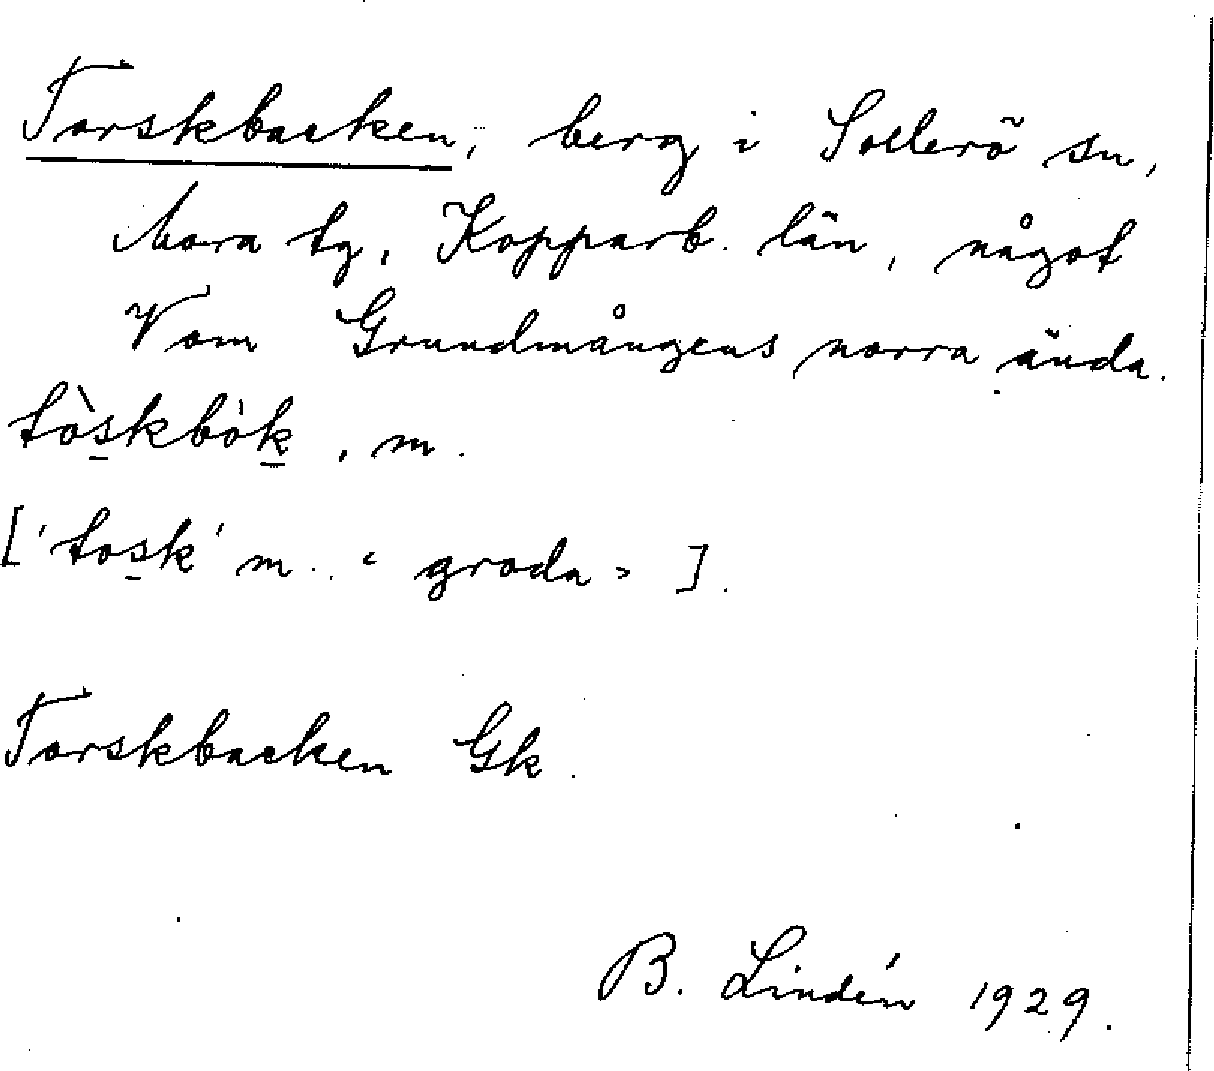 Torskbacken, berg i Sollerö sn,
Mora tg, Kopparb. län, något
V om Grundmångens norra ända.
tòs̲kbòk̲, m.
['tos̲k' m. "groda"].
Torskbacken Gk.
B. Lindén 1929.